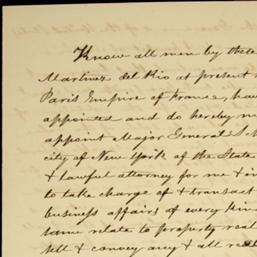 Know all men by these
Martinez del Rio at present
Paris Empire of France, have
appointed and do hereby
appoint Major General
city of New York of the State
& lawful attorney for me & in
to take charge of & transact
business affairs of every kind
same relate to property real
sell & convey any & all real